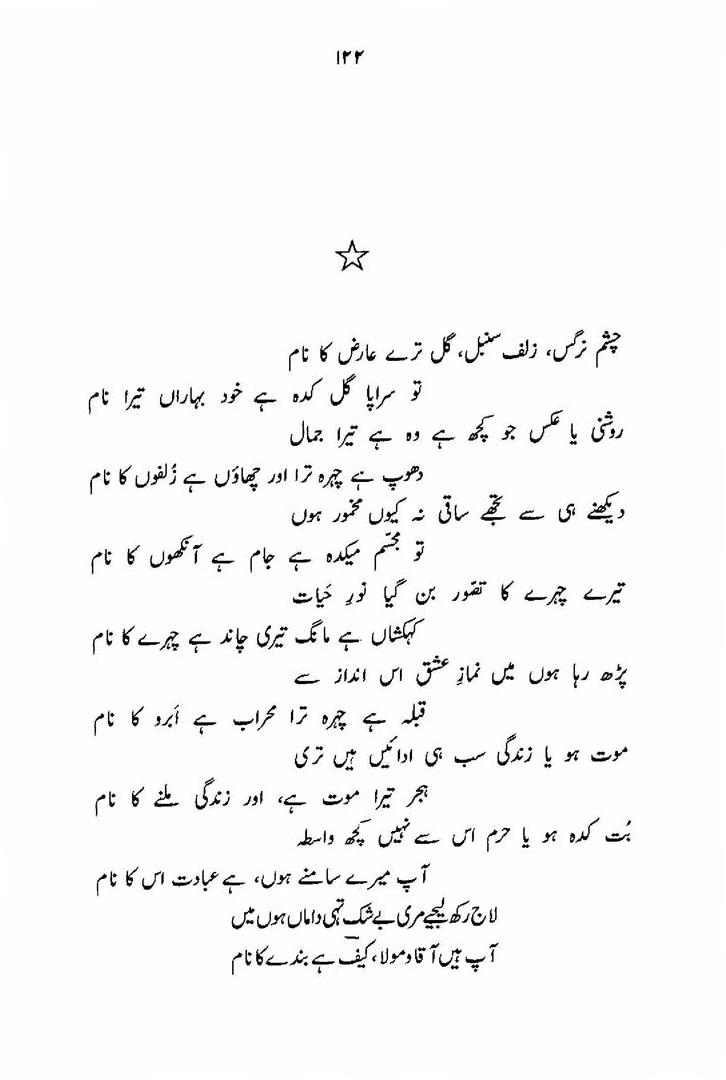 ۱۲۲
چشم نرگس، زلف سنبل، گل ترے عارض کا نام
تو سراپا گل کدہ ہے خود بہاراں تیرا نام
روشنی یا عکس جو کچھ ہے وہ ہے تیرا جمال
دھوپ ہے چہرہ ترا اور چھاؤں ہے زُلفوں کا نام
دیکھنے ہی سے تجھے ساقی نہ کیوں مخمور ہوں
تو مجسّم میکدہ ہے جام ہے آنکھوں کا نام
تیرے چہرے کا تصّور بن گیا نورِ حَیات
کہکشاں ہے مانگ تیری چاند ہے چہرے کا نام
پڑھ رہا ہوں میں نمازِ عشق اس انداز سے
قبلہ ہے چہرہ ترا محراب ہے اَبرو کا نام
موت ہو یا زندگی سب ہی ادائیں ہیں تری
ہجر تیرا موت ہے، اور زندگی ملنے کا نام
بُت کدہ ہو یا حرم اس سے نہیں کچھ واسطہ
آپ میرے سامنے ہوں، ہے عبادت اس کا نام
لاج رکھ لیجیے مری بے شک تہی داماں ہوں میں
آپ ہیں آقا و مولا، کیفؔ ہے بندے کا نام